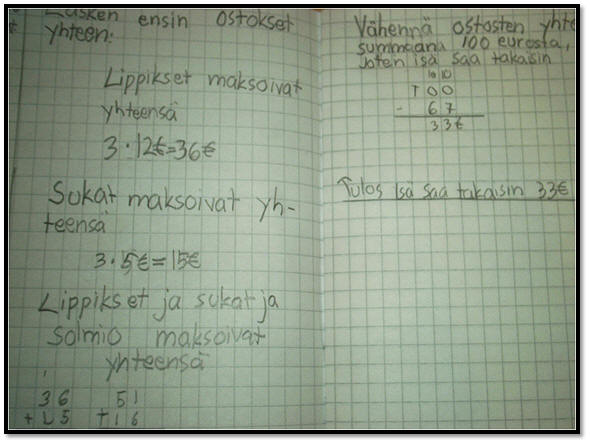 Lasken ensin ostokset
yhteen.
Lippikset maksoivat
yhteensä
3 · 12€=36€
Sukat maksoivat yh-
teensä
3 · 5€=15€
Lippikset ja sukat ja
solmio maksoivat
yhteensä
36 51
+15 +16
Vähennä ostosten yhte
summaana 100 eurosta,
Joten isä saa takaisin
10 10
100
- 67
33€
Tulos Isä saa takaisin 33€